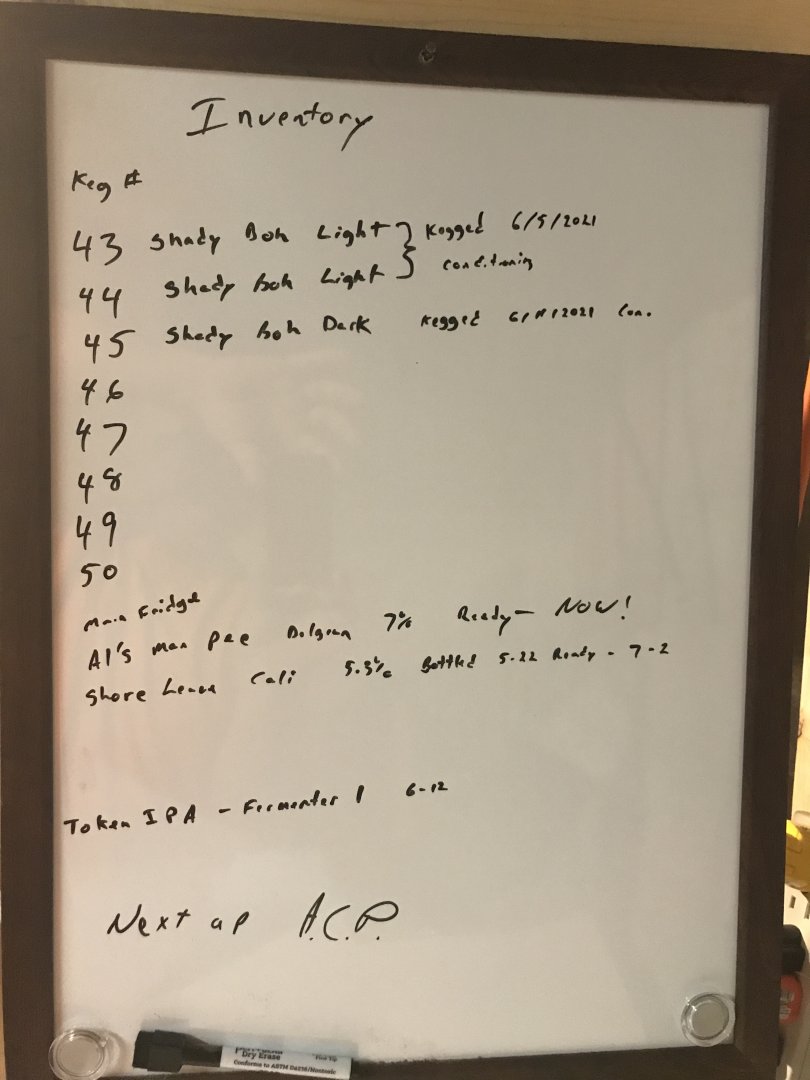 Inventory
Keg #
43 Shady Boh Light } Kegged 6/5/2021
44 Shady Boh Light } conditioning
45 Shady Boh Dark Kegged 6/11/2021 Con.
46
47
48
49
50
Main Fridge
Al's man Pee Belgian 7% Ready - NOW!
Shore Leave Cali 5.5% Bottled 5-22 Ready - 7-2
Token IPA - Fermenter 1 6-12
Next up A.C.P.
Dry Erase Fine Tip
Conforms to ASTM D4236/Nontoxic